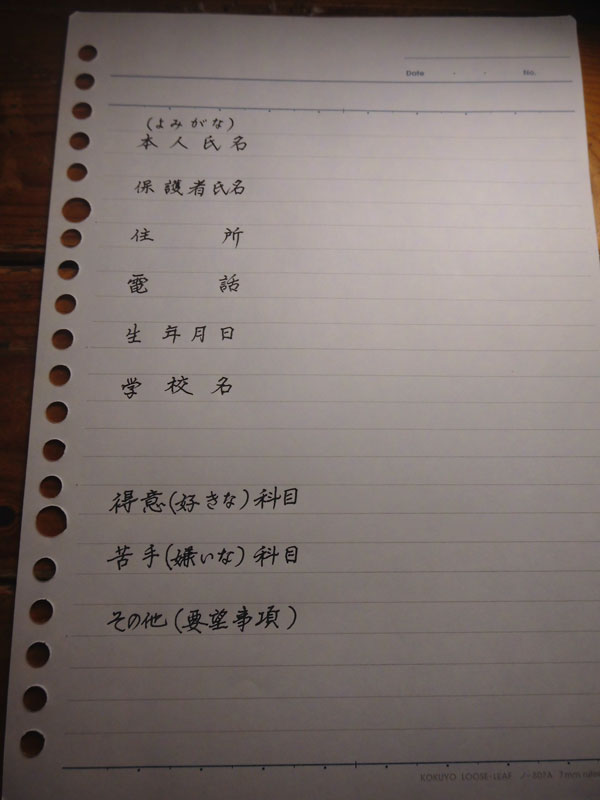 Date ・ ・ No.
(よみがな)
本人氏名
保護者氏名
住所
電話
生年月日
学校名
得意(好きな)科目
苦手(嫌いな)科目
その他(要望事項)
KOKUYO LOOSE-LEAF ノ-807A 7mm ruled